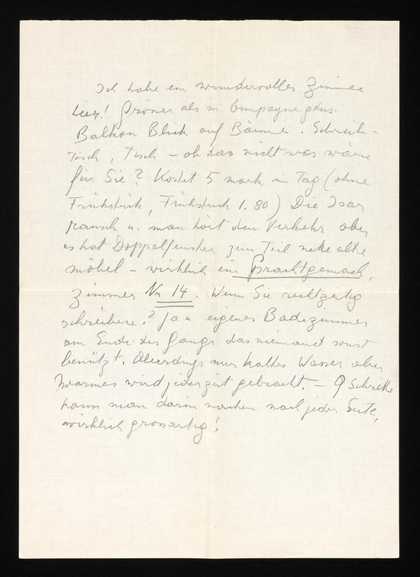 Ich habe ein wundervolles Zimmer
hier! Grösser als in Compagne plus
Balkon Blick auf Bäume. Schreib-
tisch, Tisch – ob das nicht was wäre
für Sie? Kostet 5 mark in Tag (ohne
Frühstück, Frühstück 1.80) Die Isar
rauscht u. man hört den Verkehr aber
es hat Doppelfenster zum Teil nette alte
möbel – wirklich ein Prachtgemach,
Zimmer Nr 14. Wenn Sie rechtzeitig
schreiben? Ja u eigenes Badezimmer
am Ende des Gangs das niemand sonst
benützt. Allerdings nur kaltes Wasser aber
warmes wird jederzeit gebracht. – 9 Schritte
kann man darin machen nach jeder Seite,
wirklich grossartig!